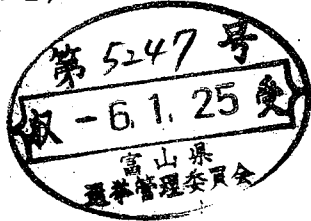 第5247号
収 -6.1.25 受
富山県
選挙管理委員会